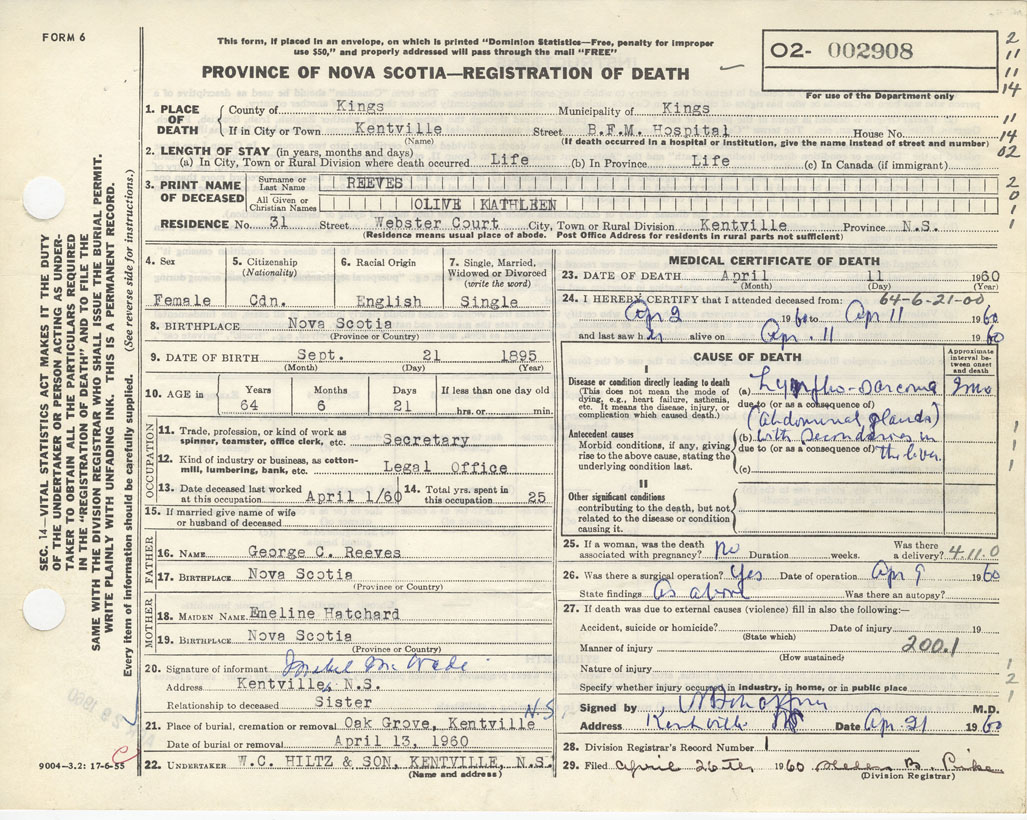 FORM 6
This form, if placed in an envelope, on which is printed "Dominion Statistics—Free, penalty for improper
use $50," and properly addressed will pass through the mail "FREE"
PROVINCE OF NOVA SCOTIA—REGISTRATION OF DEATH
02- 002908
For use of the Department only
2
11
11
14
11
14
02
2
0
1
1. PLACE OF DEATH
County of Kings Municipality of Kings
If in City or Town Kentville Street B.F.M. Hospital House No.
(Name) (If death occurred in a hospital or institution, give the name instead of street and number)
2. LENGTH OF STAY (in years, months and days)
(a) In City, Town or Rural Division where death occurred Life (b) In Province Life (c) In Canada (if immigrant)
3. PRINT NAME OF DECEASED
Surname or Last Name REEVES
All Given or Christian Names OLIVE KATHLEEN
RESIDENCE No. 31 Street Webster Court City, Town or Rural Division Kentville Province N.S.
(Residence means usual place of abode. Post Office Address for residents in rural parts not sufficient)
4. Sex Female
5. Citizenship (Nationality) Cdn.
6. Racial Origin English
7. Single, Married, Widowed or Divorced (write the word) Single
8. BIRTHPLACE Nova Scotia
(Province or Country)
9. DATE OF BIRTH Sept. 21 1895
(Month) (Day) (Year)
10. AGE in Years 64 Months 6 Days 21 If less than one day old hrs. or min.
OCCUPATION
11. Trade, profession, or kind of work as spinner, teamster, office clerk, etc. Secretary
12. Kind of industry or business, as cotton-mill, lumbering, bank, etc. Legal Office
13. Date deceased last worked at this occupation April 1/60
14. Total yrs. spent in this occupation 25
15. If married give name of wife or husband of deceased
FATHER
16. NAME George C. Reeves
17. BIRTHPLACE Nova Scotia
(Province or Country)
MOTHER
18. MAIDEN NAME Emeline Hatchard
19. BIRTHPLACE Nova Scotia
(Province or Country)
20. Signature of informant
Address Kentville, N.S.
Relationship to deceased Sister
21. Place of burial, cremation or removal Oak Grove, Kentville N.S
Date of burial or removal April 13, 1960
22. UNDERTAKER W.C. HILTZ & SON, KENTVILLE, N.S.
(Name and address)
MEDICAL CERTIFICATE OF DEATH
23. DATE OF DEATH April 11 1960
(Month) (Day) (Year)
64-6-21-00
24. I HEREBY CERTIFY that I attended deceased from:
Apr 2 1960 to Apr 11 1960
and last saw her alive on Apr. 11 1960
CAUSE OF DEATH
Approximate interval between onset and death
I
Disease or condition directly leading to death
(This does not mean the mode of dying, e.g., heart failure, asthenia, etc. It means the disease, injury, or complication which caused death.)
(a) Lympho-Sarcoma
due to (or as a consequence of)
(abdominal glands)
Antecedent causes
Morbid conditions, if any, giving rise to the above cause, stating the underlying condition last.
(b) with secondaries in
due to (or as a consequence of)
the liver.
(c)
II
Other significant conditions
contributing to the death, but not related to the disease or condition causing it.
1
1
1
25. If a woman, was the death associated with pregnancy? no Duration weeks. Was there a delivery? 4.11.0
26. Was there a surgical operation? Yes Date of operation Apr 9 1960
State findings as above Was there an autopsy?
27. If death was due to external causes (violence) fill in also the following:—
Accident, suicide or homicide? Date of injury 19
(State which)
Manner of injury 200.1
(How sustained)
Nature of injury
Specify whether injury occurred in industry, in home, or in public place
1
2
1
Signed by M.D.
Address Kentville NS Date Apr 21 1960
28. Division Registrar's Record Number 1
29. Filed April 26th 1960
(Division Registrar)
9004—3.2: 17-6-55
SEC. 14—VITAL STATISTICS ACT MAKES IT THE DUTY
OF THE UNDERTAKER OR PERSON ACTING AS UNDER-
TAKER TO OBTAIN ALL THE PARTICULARS REQUIRED
IN THE "REGISTRATION OF DEATH" AND TO FILE THE
SAME WITH THE DIVISION REGISTRAR WHO SHALL ISSUE THE BURIAL PERMIT.
WRITE PLAINLY WITH UNFADING INK. THIS IS A PERMANENT RECORD.
Every item of information should be carefully supplied. (See reverse side for instructions.)